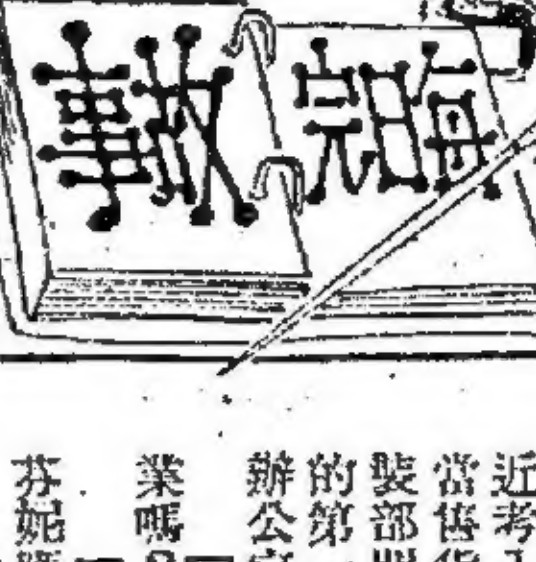 每日完故事
近考
當售
裝部
的第
辦公
業嗎
芬妮